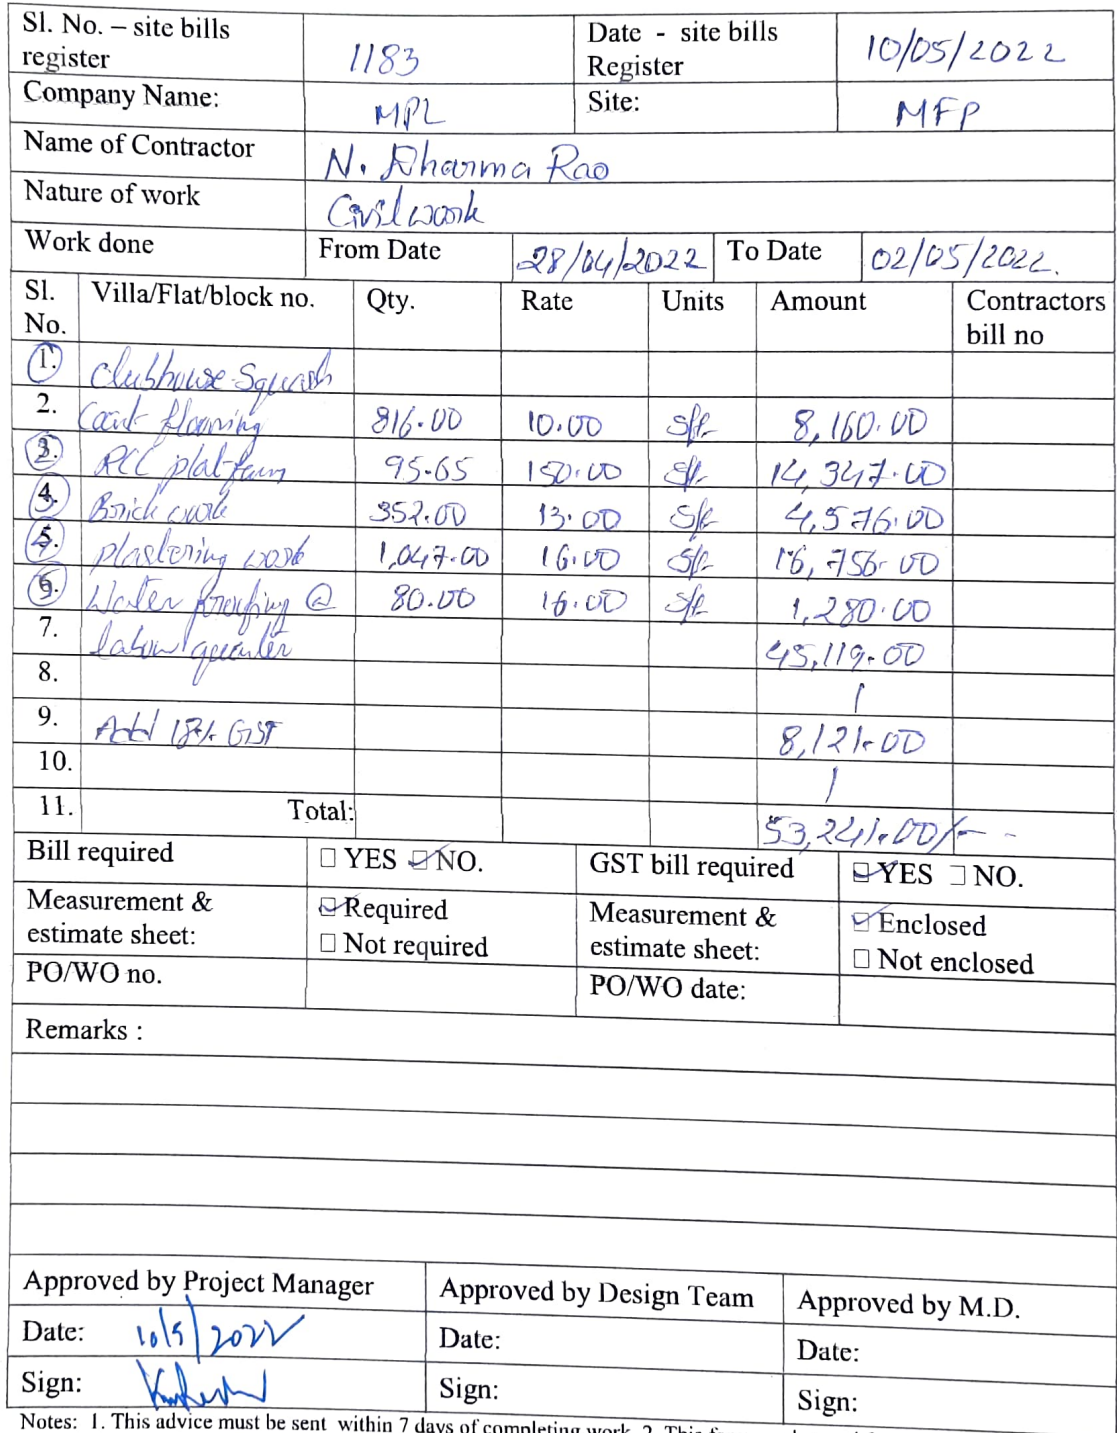 Sl. No. – site bills register 1183 Date - site bills Register 10/05/2022
Company Name: MPL Site: MFP
Name of Contractor N. Dharma Rao
Nature of work Civil work
Work done From Date 28/04/2022 To Date 02/05/2022.
Sl. No. Villa/Flat/block no. Qty. Rate Units Amount Contractors bill no
1. Clubhouse Squash
2. Court flooring 816.00 10.00 sft 8,160.00
3. RCC platform 95.65 150.00 sft 14,347.00
4. Brick work 352.00 13.00 sft 4,576.00
5. plastering work 1,047.00 16.00 sft 16,756.00
6. Water proofing @ 80.00 16.00 sft 1,280.00
7. labour quarter 45,119.00
8.
9. Add 18% GST 8,121.00
10.
11. Total: 53,241.00/-
Bill required YES NO. GST bill required YES NO.
Measurement & estimate sheet: Required Not required Measurement & estimate sheet: Enclosed Not enclosed
PO/WO no. PO/WO date:
Remarks :
Approved by Project Manager Approved by Design Team Approved by M.D.
Date: 10/5/2022 Date: Date:
Sign: Sign: Sign:
Notes: 1. This advice must be sent within 7 days of completing work. 2. This